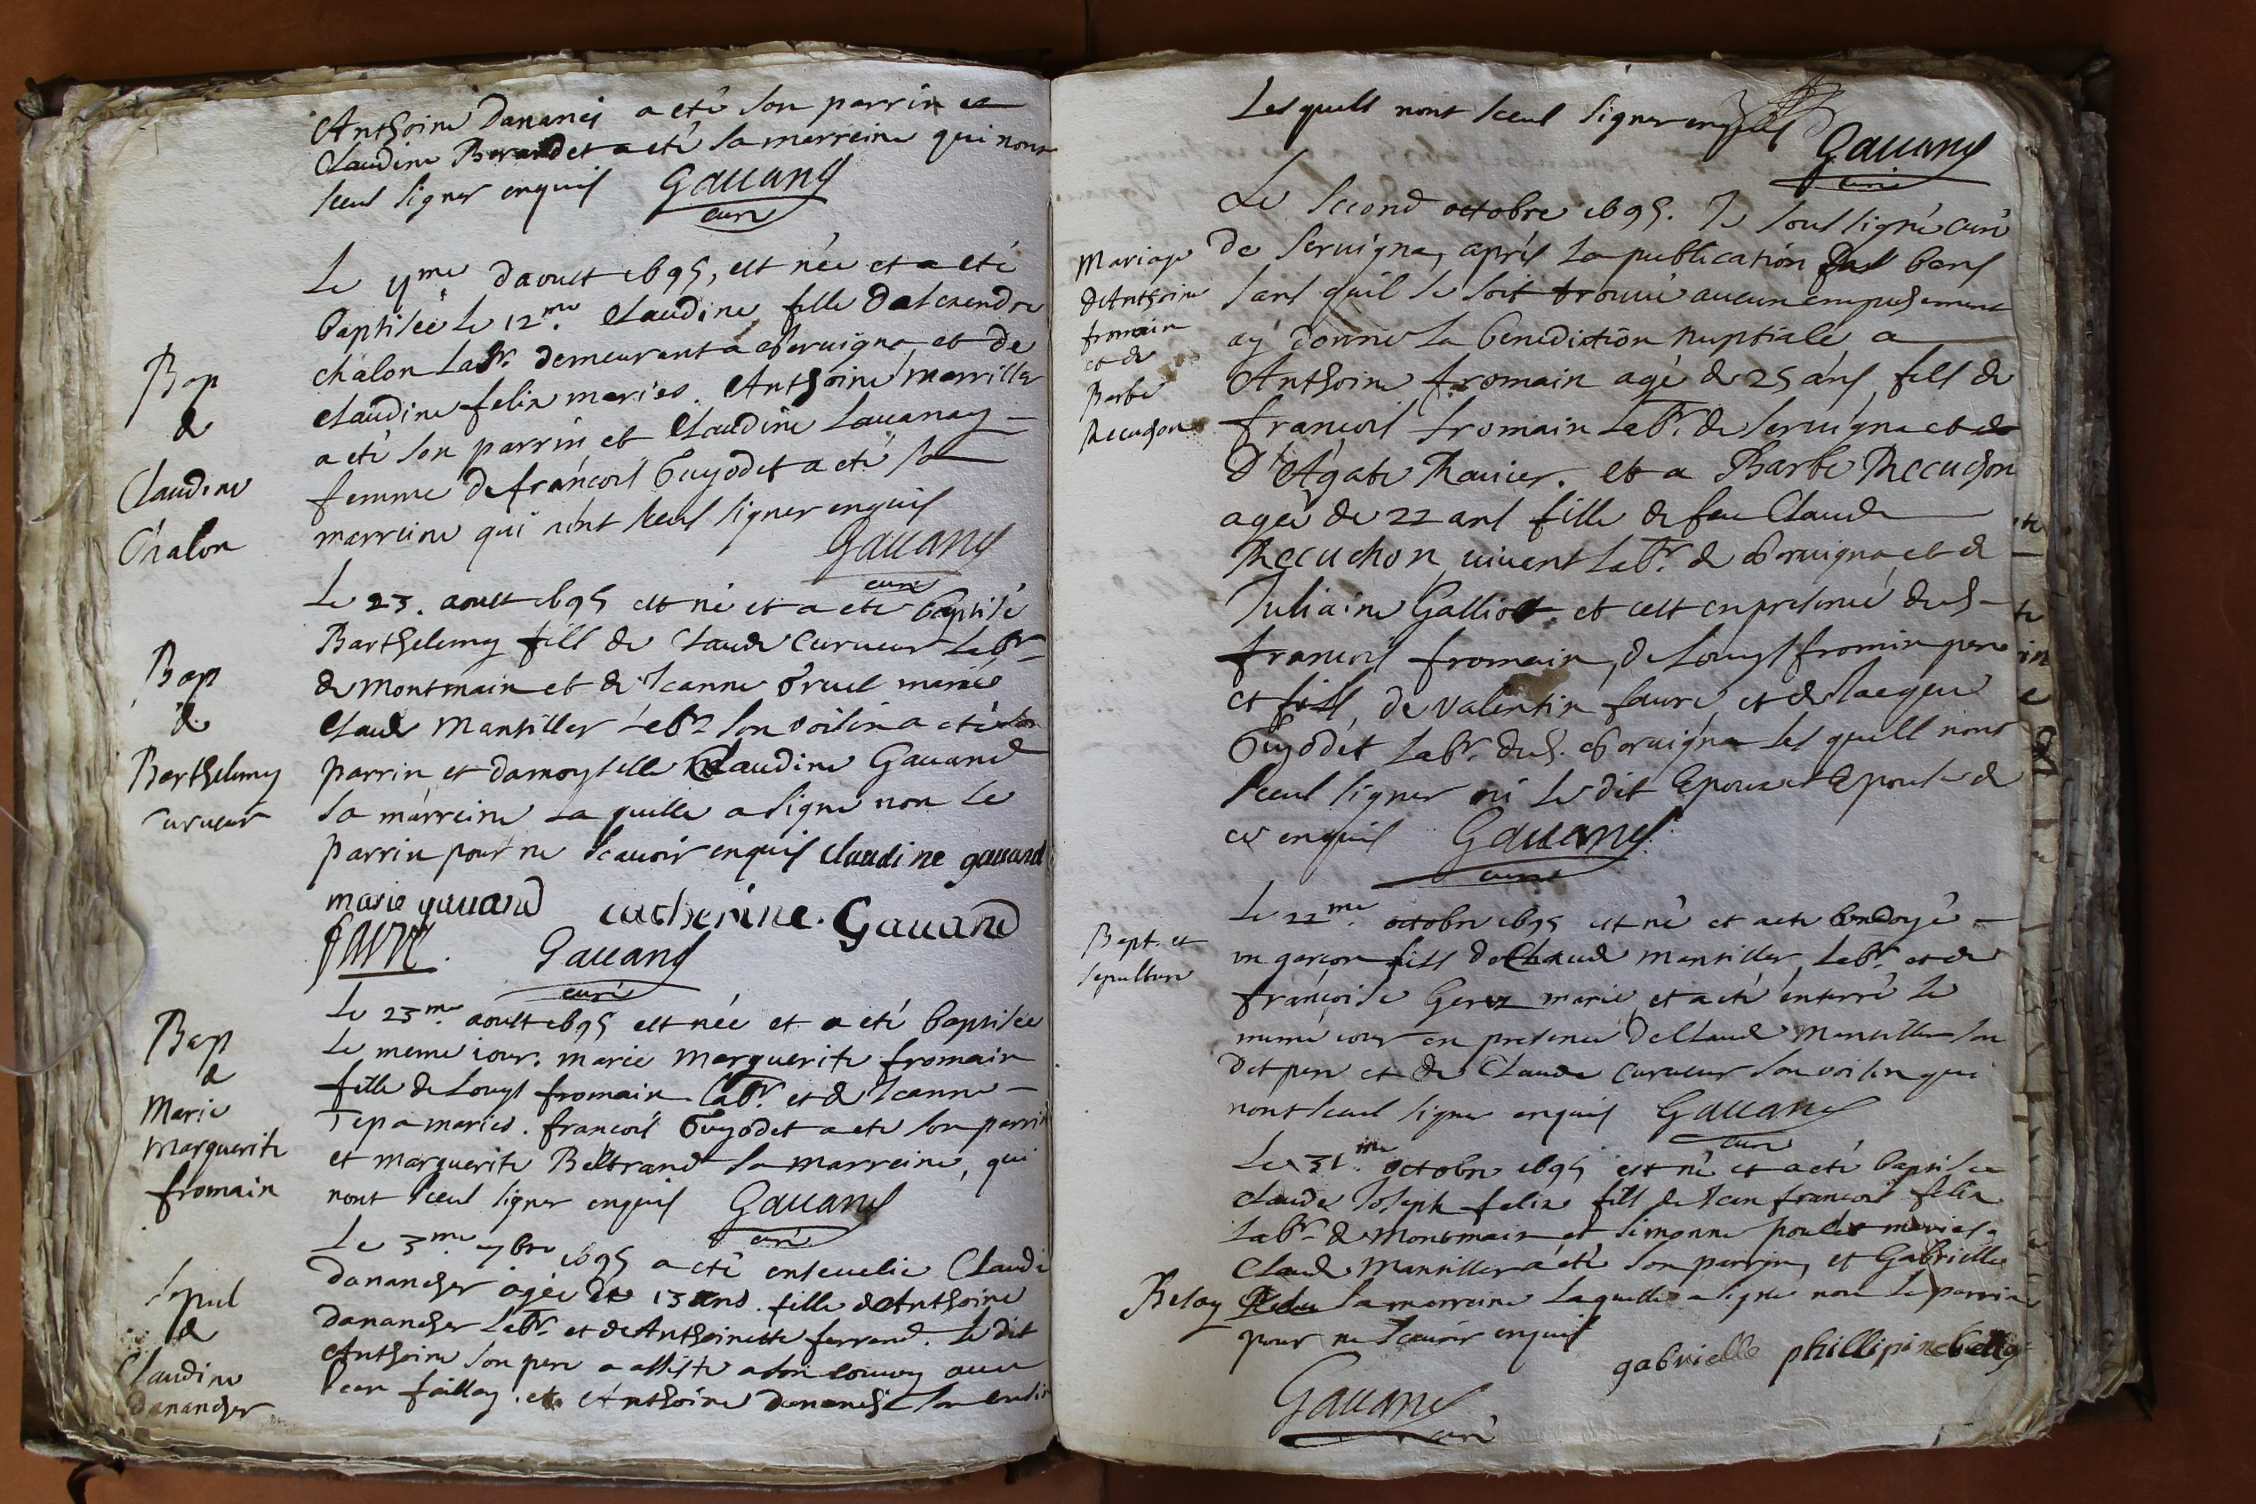 Anthoine Dananchi a eté son parrin et
Claudine Berardet a eté sa marreine qui nont
sceul signer enquis Gauand
curé
Le 11me daoust 1695, est née et a eté
baptisée le 12me Claudine fille dalexendre
chalon Labr. demeurant a Seruigna et de
Claudine felix mariés. Anthoine marviller
a eté son parrin et Claudine Lauanay
femme de françois Guyodet a eté sa
marreine qui nont sceul signer enquis
Gauand
curé
Bap
de
Claudine
Chalon
Le 23. aoust 1695 est né et a eté baptisé
Barthelemy fils de Claude Curueur Labr
de montmain et de Jeanne mariés
Claude Mantiller Labr son voisin a eté son
parrin et damoyselle Claudine Gauand
sa marreine Laquelle a signé non le
parrin pour ne scauoir enquis claudine gauand
marie gauand catherine. Gauand
faure
Gauand
curé
Bap
de
Barthelemy
Curueur
Le 23me aoust 1695 est née et a eté baptisée
le meme iour. marie marguerite fromain
fille de Louys fromain Labr. et de Jeanne
Tepa mariés. françois Guyodet a eté son parrin
et marguerite Beltrand sa marreine, qui
nont sceul signer enquis Gauand
curé
Bap
de
Marie
marguerite
fromain
Le 3me 7bre 1695 a eté enseuelie Claudi
danancher agée de 13 ans. fille de Anthoine
danancher Labr. et de Anthoinette ferrand. Le dit
Anthoine son pere a assisté a son conuoy auec
Jean faillay. et Anthoine dananchi son
Sepul
de
Claudine
Danancher
Lesquels nont sceul signer enquis
Gauand
curé
Le second octobre 1695. Je soussigné curé
de Seruigna, après la publication des bans
sans quil se soit trouué aucun empechement
ay donné la benediction nuptiale a
Anthoine fromain agé de 25 ans, fils de
françois fromain Labr. de Seruigna et de
D'Agate Rauier. et a Barbe Recuchon
agée de 22 ans fille de feu Claude
Recuchon, viuent Labr. de Seruigna et de
Juliaine Galliot. et cest en presence dud.
francois fromain, de Louys fromin pere
et fils, de valentin faure et de Jacque
Guyodet Labr. dud. Seruigna Lesquells nont
sceul signer ni le dit Epoux et Epouse de
ce enquis Gauand
curé
Mariage
de Anthoine
fromain
et de
Barbe
Recuchon
Le 22me. octobre 1695 est né et a eté ondoyé
un garçon fils de Claude Mantiller Labr. et de
françoise mariés et a eté enterré le
meme iour en presence de Claude Mantiller son
dit pere et de Claude Curueur son voisin qui
nont sceul signer enquis Gauand
curé
Bapt. et
sepulture
Le 31me octobre 1695 est né et a eté baptisé
claude Joseph felix fils de Jean françois felix
Labr. de Montmain et simonne mariés.
Claude Mantiller a eté son parrin, et Gabrielle
Belay sa marreine laquelle a signé non le parrin
pour ne scauoir enquis
gabrielle phillipine
Gauand
curé